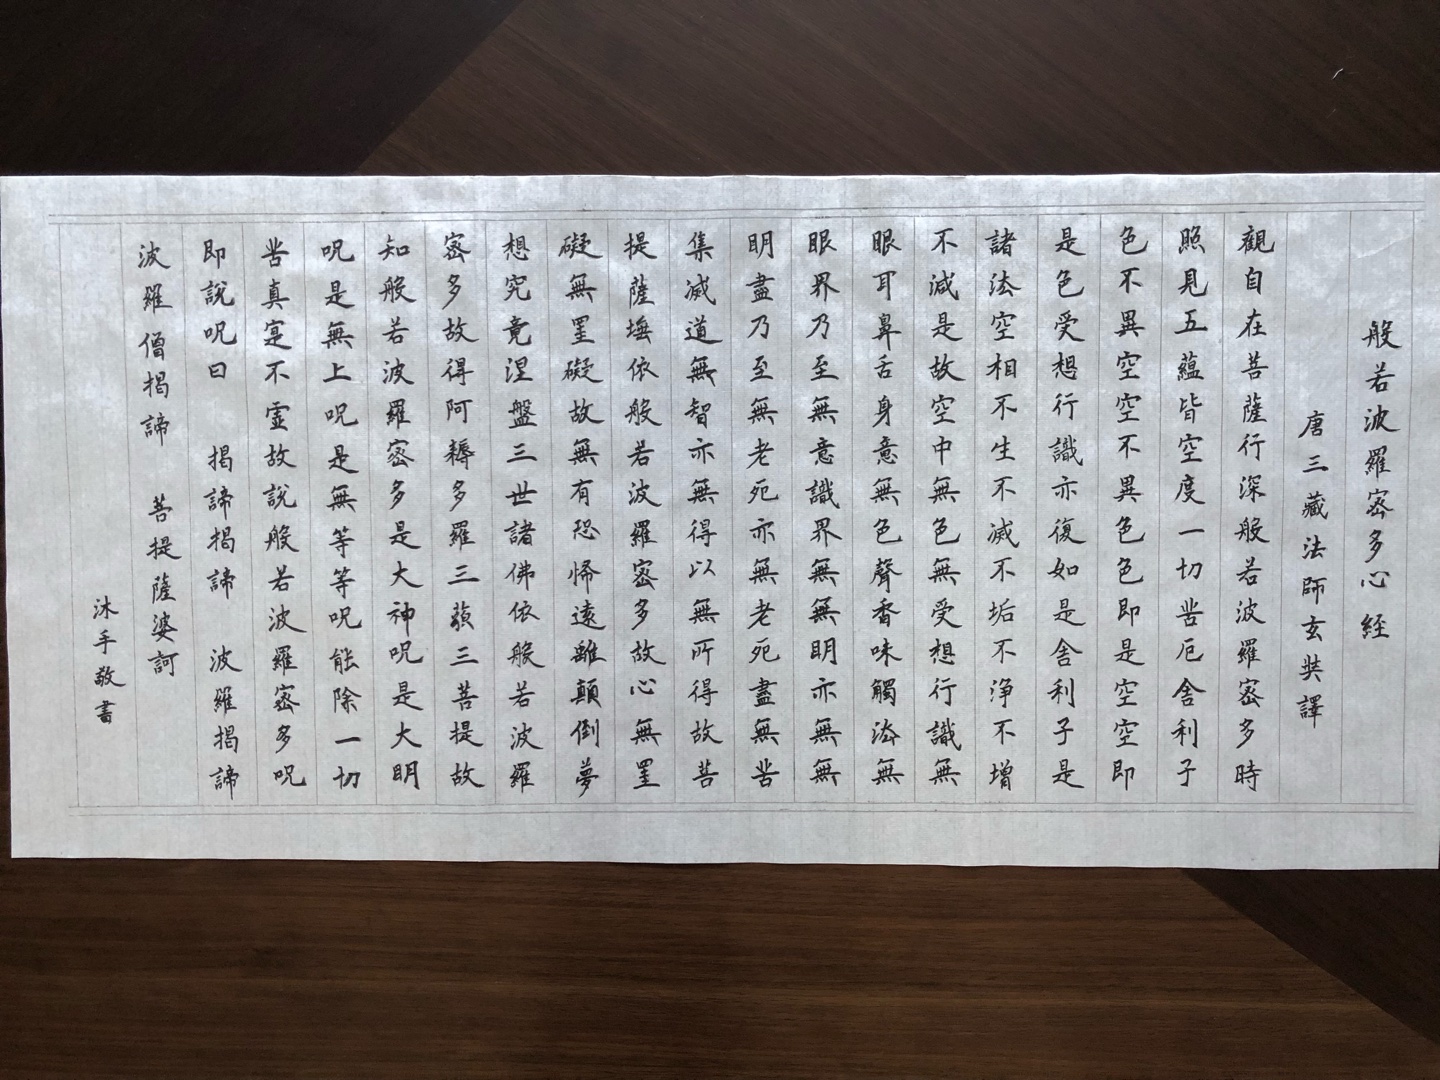 般若波羅密多心経
唐三藏法師玄奘譯
觀自在菩薩行深般若波羅密多時
照見五蘊皆空度一切苦厄舍利子
色不異空空不異色色即是空空即
是色受想行識亦復如是舍利子是
諸法空相不生不滅不垢不淨不增
不減是故空中無色無受想行識無
眼耳鼻舌身意無色聲香味觸法無
眼界乃至無意識界無無明亦無無
明盡乃至無老死亦無老死盡無苦
集滅道無智亦無得以無所得故菩
提薩埵依般若波羅密多故心無罣
礙無罣礙故無有恐怖遠離顛倒夢
想究竟涅盤三世諸佛依般若波羅
密多故得阿耨多羅三藐三菩提故
知般若波羅密多是大神呪是大明
呪是無上呪是無等等呪能除一切
苦真寔不虛故說般若波羅密多呪
即說呪曰 揭諦揭諦 波羅揭諦
波羅僧揭諦 菩提薩婆訶
沐手敬書